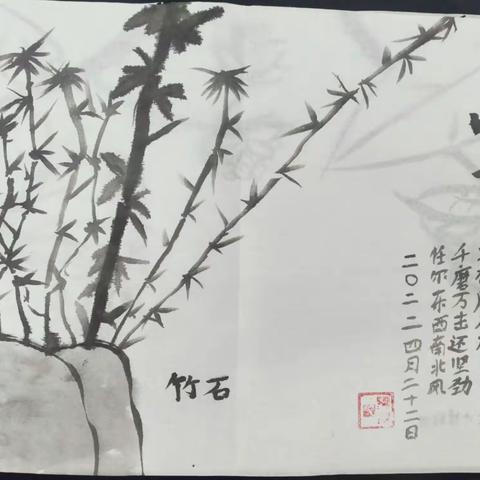 千磨万击还坚劲
任尔东西南北风
二〇二二四月二十二日
竹石